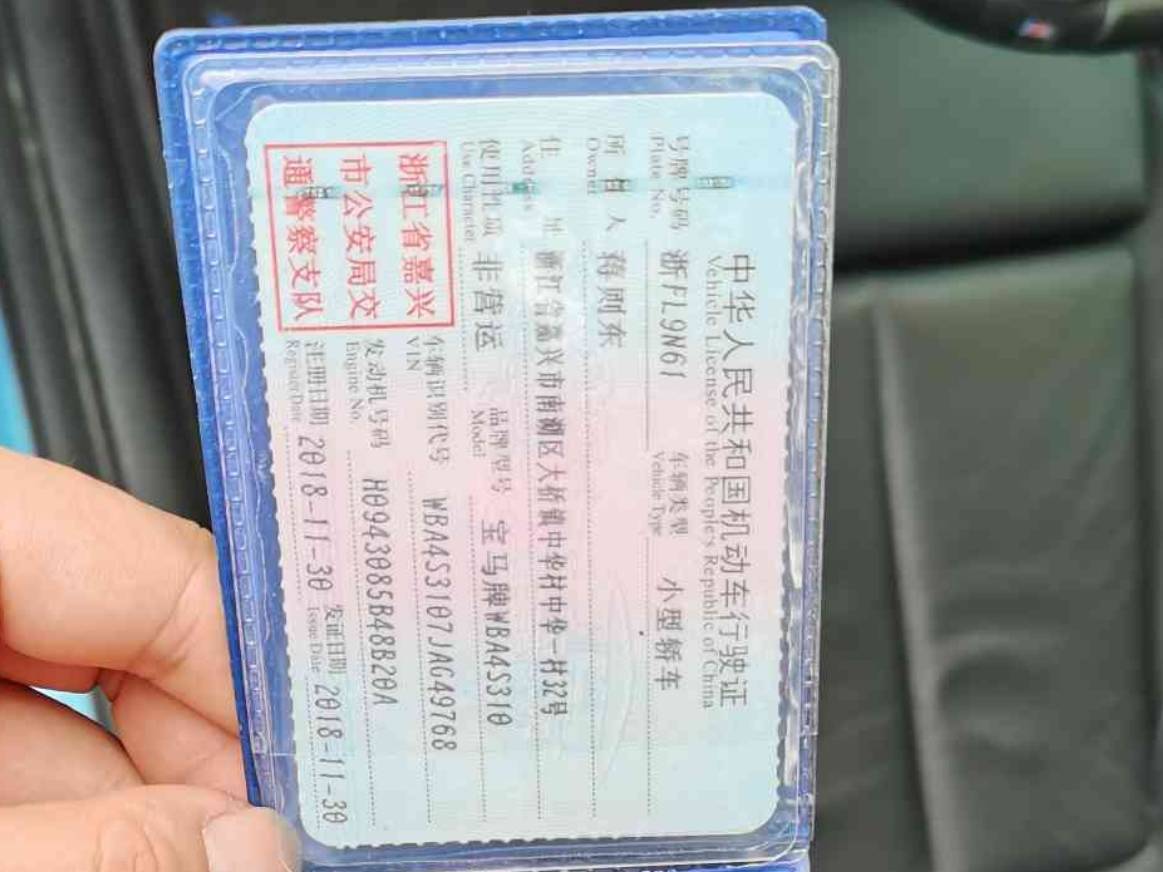 中华人民共和国机动车行驶证
Vehicle License of the People's Republic of China
号牌号码 浙FL9N61 车辆类型 小型轿车
Plate No. Vehicle Type
所有人 蒋则东
Owner
住址 浙江省嘉兴市南湖区大桥镇中华村中华一村32号
Address
使用性质 非营运 品牌型号 宝马牌WBA4S310
Use Character Model
浙江省嘉兴
市公安局交
通警察支队
车辆识别代号 WBA4S3107JAG49768
VIN
发动机号码 H0943085B48B20A
Engine No.
注册日期 2018-11-30 发证日期 2018-11-30
Register Date Issue Date